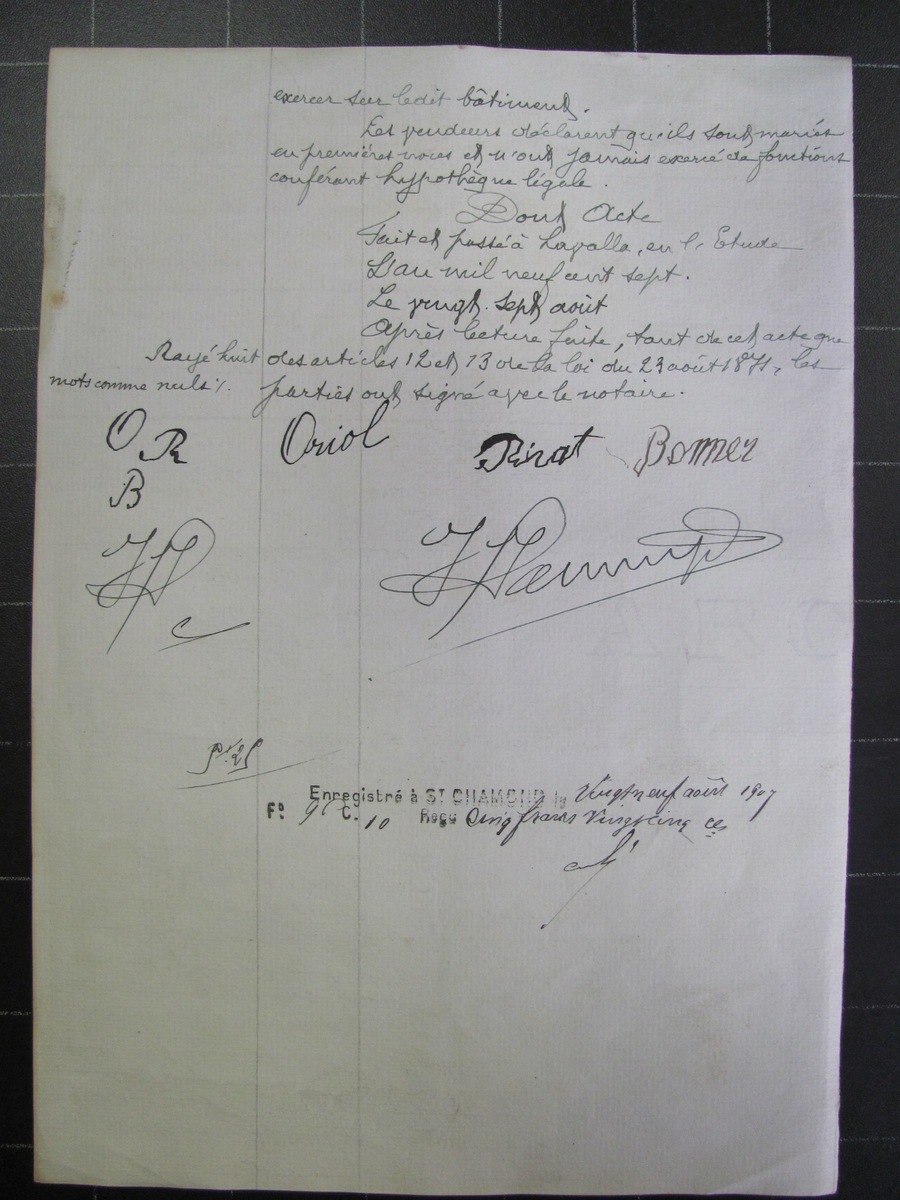 exercer sur ledit bâtiment.
Les vendeurs déclarent qu'ils sont mariés
en premières noces et n'ont jamais exercé de fonctions
conférant hypothèque légale.
Dont Acte
Fait et passé à Lavalla, en l'Etude
L'an mil neuf cent sept.
Le vingt sept août
Après lecture faite, tant de cet acte que
des articles 12 et 13 de la loi du 23 août 1871, les
parties ont signé avec le notaire.
Rayé huit
mots comme nuls
O R
B
Oriol
Rivat Bonner
Enregistré à ST CHAMOND le Vingt neuf août 1907
F° C. 10 Reçu Cinq francs Vingt cinq ces